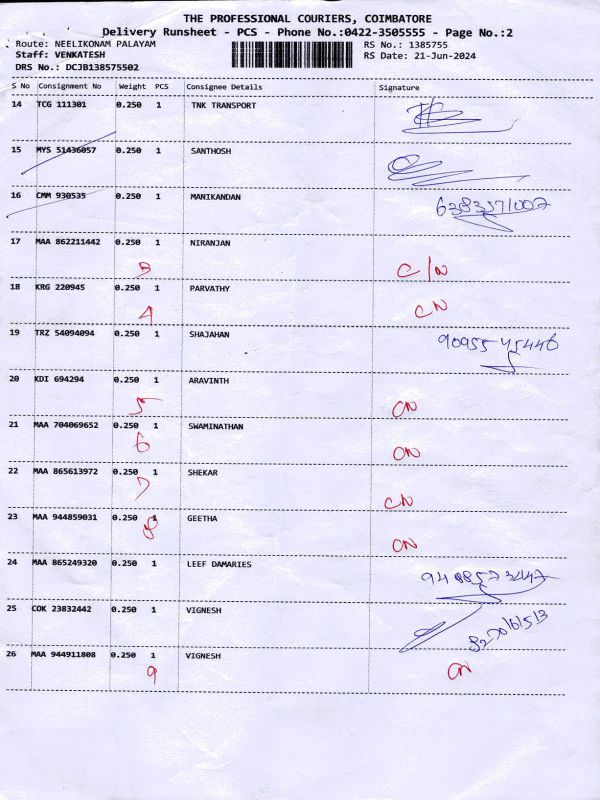 THE PROFESSIONAL COURIERS, COIMBATORE
Delivery Runsheet - PCS - Phone No.:0422-3505555 - Page No.:2
Route: NEELIKONAM PALAYAM RS No.: 1385755
Staff: VENKATESH RS Date: 21-Jun-2024
DRS No.: DCJB138575502
S No Consignment No Weight PCS Consignee Details Signature
14 TCG 111301 0.250 1 TNK TRANSPORT
15 MYS 51436057 0.250 1 SANTHOSH
16 CMM 930535 0.250 1 MANIKANDAN 6383571007
17 MAA 862211442 0.250 1 NIRANJAN
3 C/N
18 KRG 220945 0.250 1 PARVATHY
4 CN
19 TRZ 54094094 0.250 1 SHAJAHAN 9095545446
20 KDI 694294 0.250 1 ARAVINTH
5 CN
21 MAA 704069652 0.250 1 SWAMINATHAN
6 CN
22 MAA 865613972 0.250 1 SHEKAR
7 CN
23 MAA 944859031 0.250 1 GEETHA
8 CN
24 MAA 865249320 0.250 1 LEEF DAMARIES
25 COK 23832442 0.250 1 VIGNESH
26 MAA 944911808 0.250 1 VIGNESH
9 CN